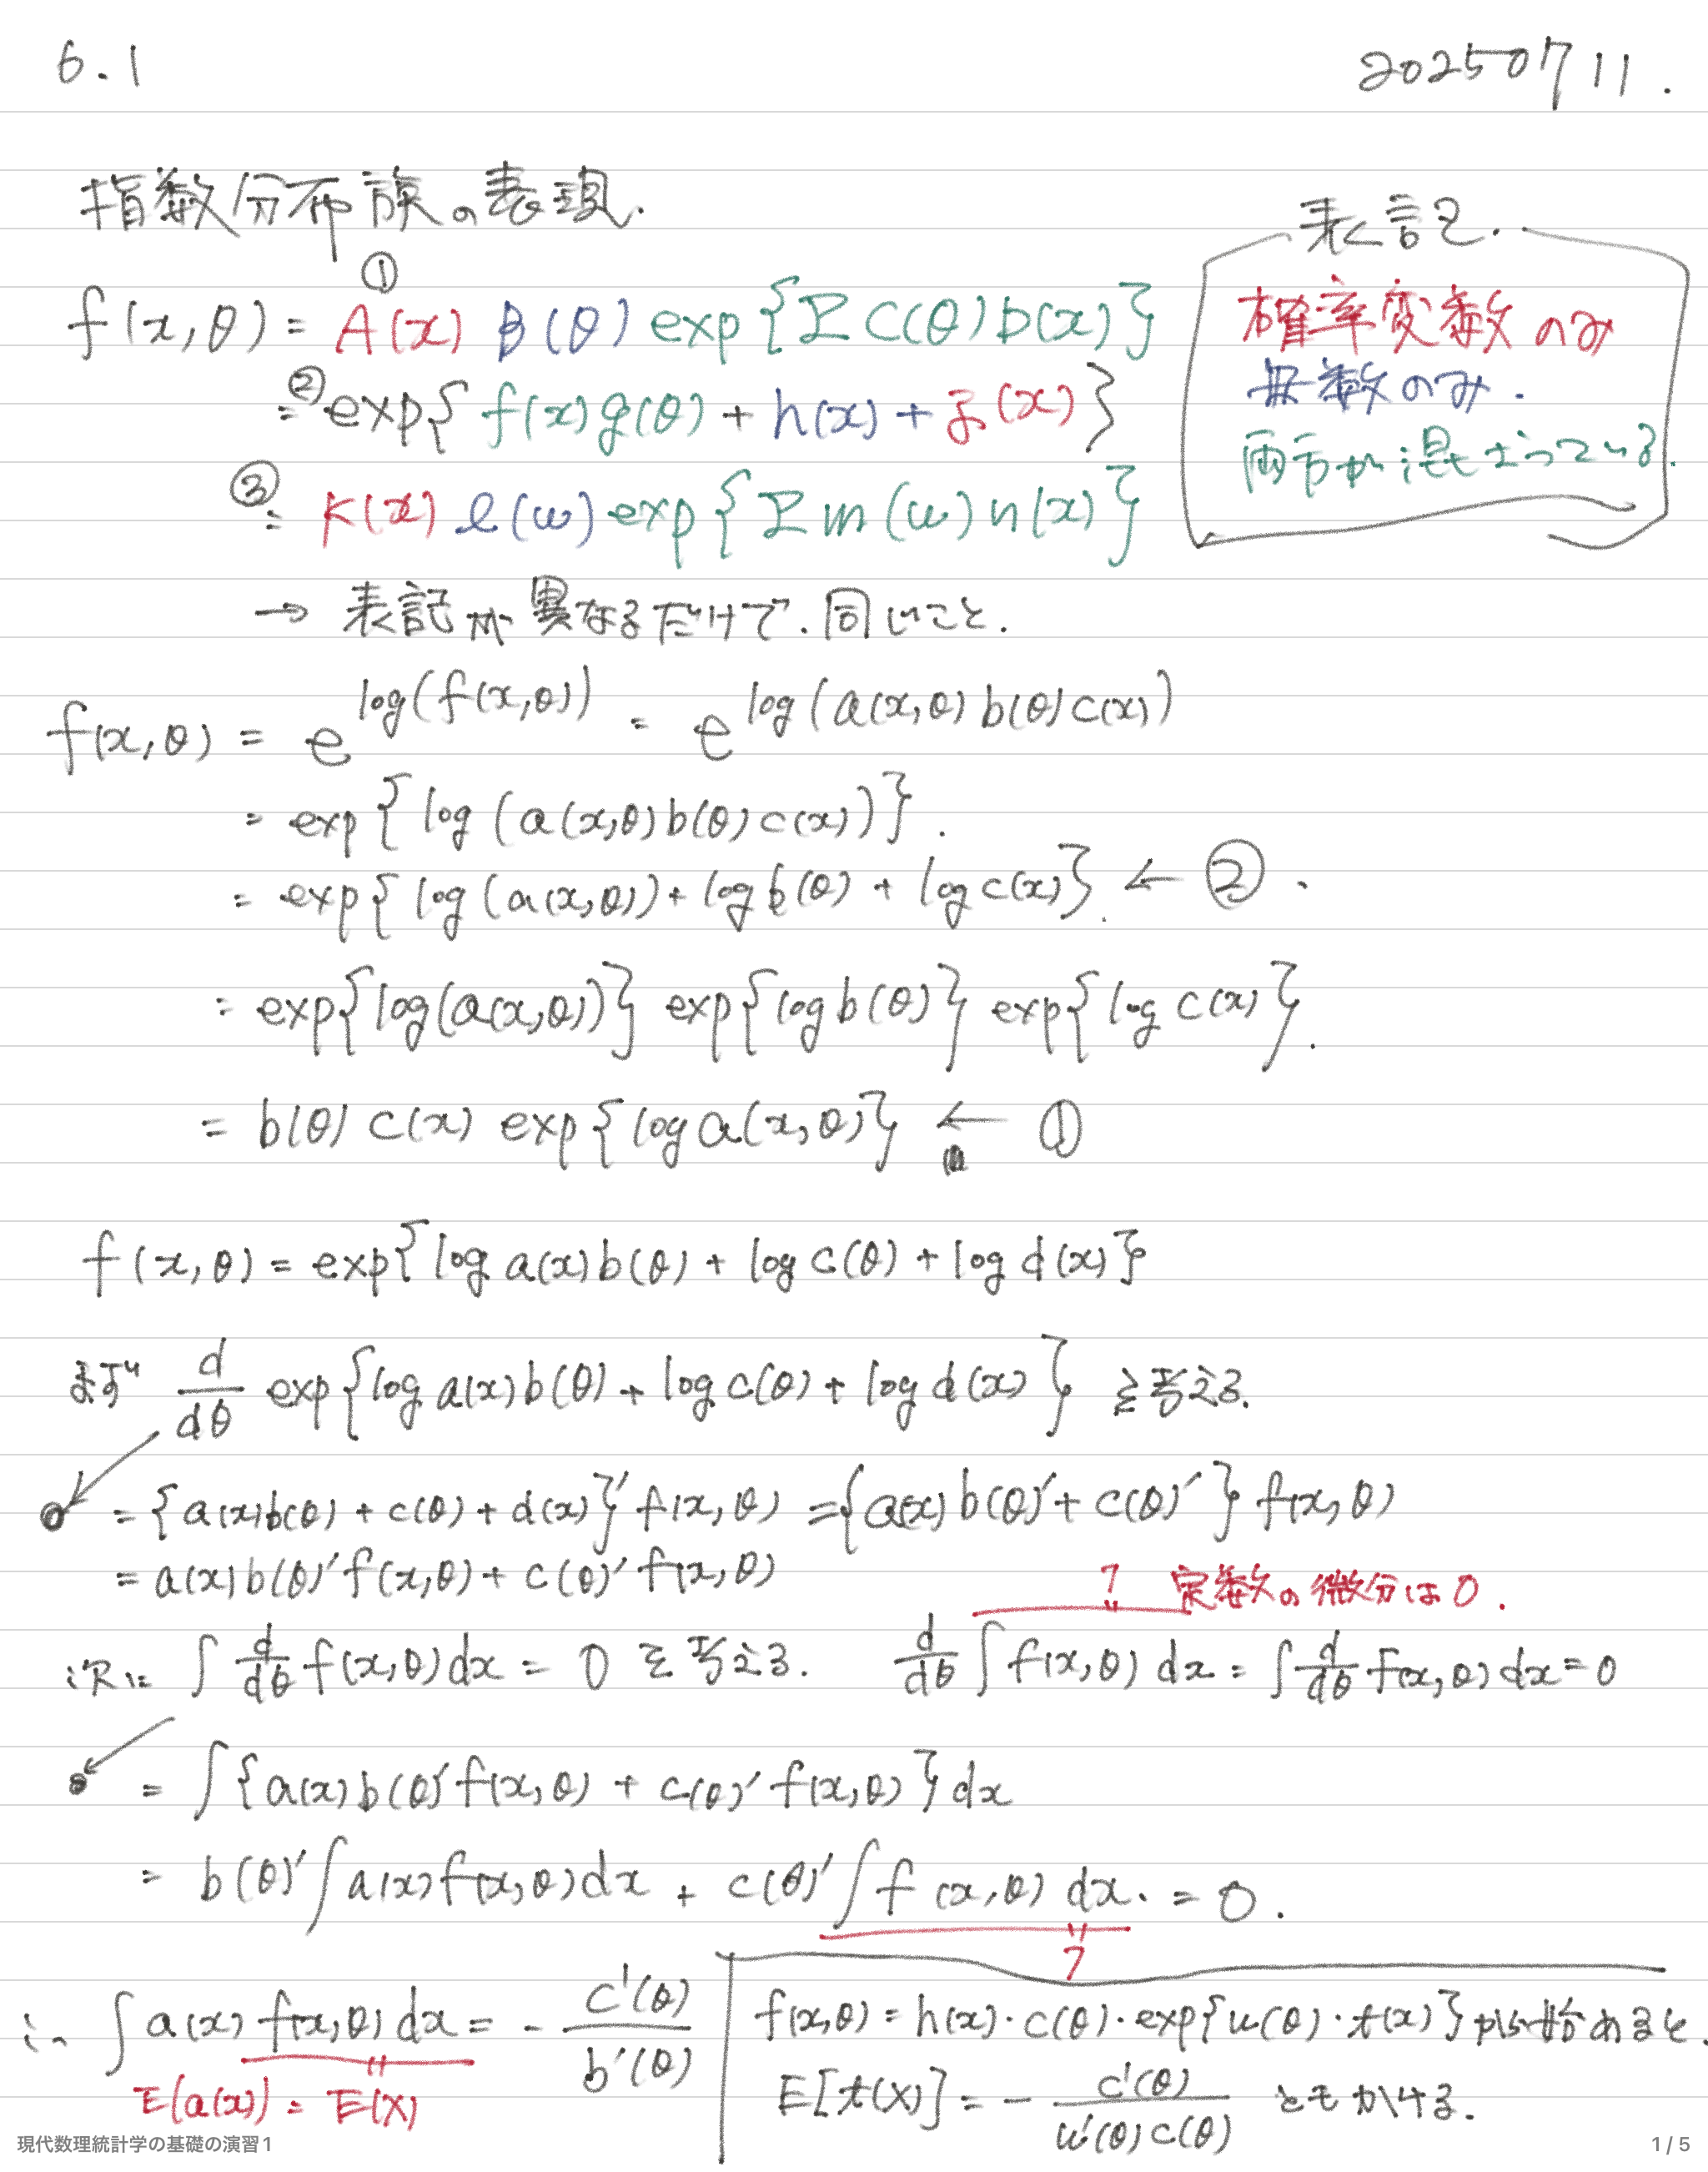 6.1
20250711.
指数分布族の表現.
表記.
確率変数のみ
母数のみ.
両方が混ざっている.
①
f(x,θ) = A(x) B(θ) exp{Σ C(θ) D(x)}
② = exp{ f(x) g(θ) + h(x) + j(x) }
③ = k(x) l(w) exp{Σ m(w) n(x)}
→ 表記が異なるだけで.同じこと.
f(x,θ) = e^log(f(x,θ)) = e^log(a(x,θ) b(θ) c(x))
= exp{log (a(x,θ) b(θ) c(x))}.
= exp{log (a(x,θ)) + log b(θ) + log c(x)}. ← ②.
= exp{log(a(x,θ))} exp{log b(θ)} exp{log c(x)}.
= b(θ) c(x) exp{log a(x,θ)} ← ①
f(x,θ) = exp{log a(x) b(θ) + log c(θ) + log d(x)}
まず d/dθ exp{log a(x) b(θ) + log c(θ) + log d(x)} を考える.
= {a(x) b(θ) + c(θ) + d(x)}′ f(x,θ) = {a(x) b(θ)′ + c(θ)′} f(x,θ)
= a(x) b(θ)′ f(x,θ) + c(θ)′ f(x,θ)
1 定数の微分は0.
次に ∫ d/dθ f(x,θ) dx = 0 を考える. d/dθ ∫ f(x,θ) dx = ∫ d/dθ f(x,θ) dx = 0
= ∫ {a(x) b(θ)′ f(x,θ) + c(θ)′ f(x,θ)} dx
= b(θ)′ ∫ a(x) f(x,θ) dx + c(θ)′ ∫ f(x,θ) dx. = 0.
1
∴ ∫ a(x) f(x,θ) dx = - c'(θ)/b'(θ)
E(a(x)) = E(X)
f(x,θ) = h(x)・c(θ)・exp{w(θ)・t(x)} から始めると.
E[t(X)] = - c'(θ)/w'(θ)c(θ) ともかける.
現代数理統計学の基礎の演習1
1 / 5